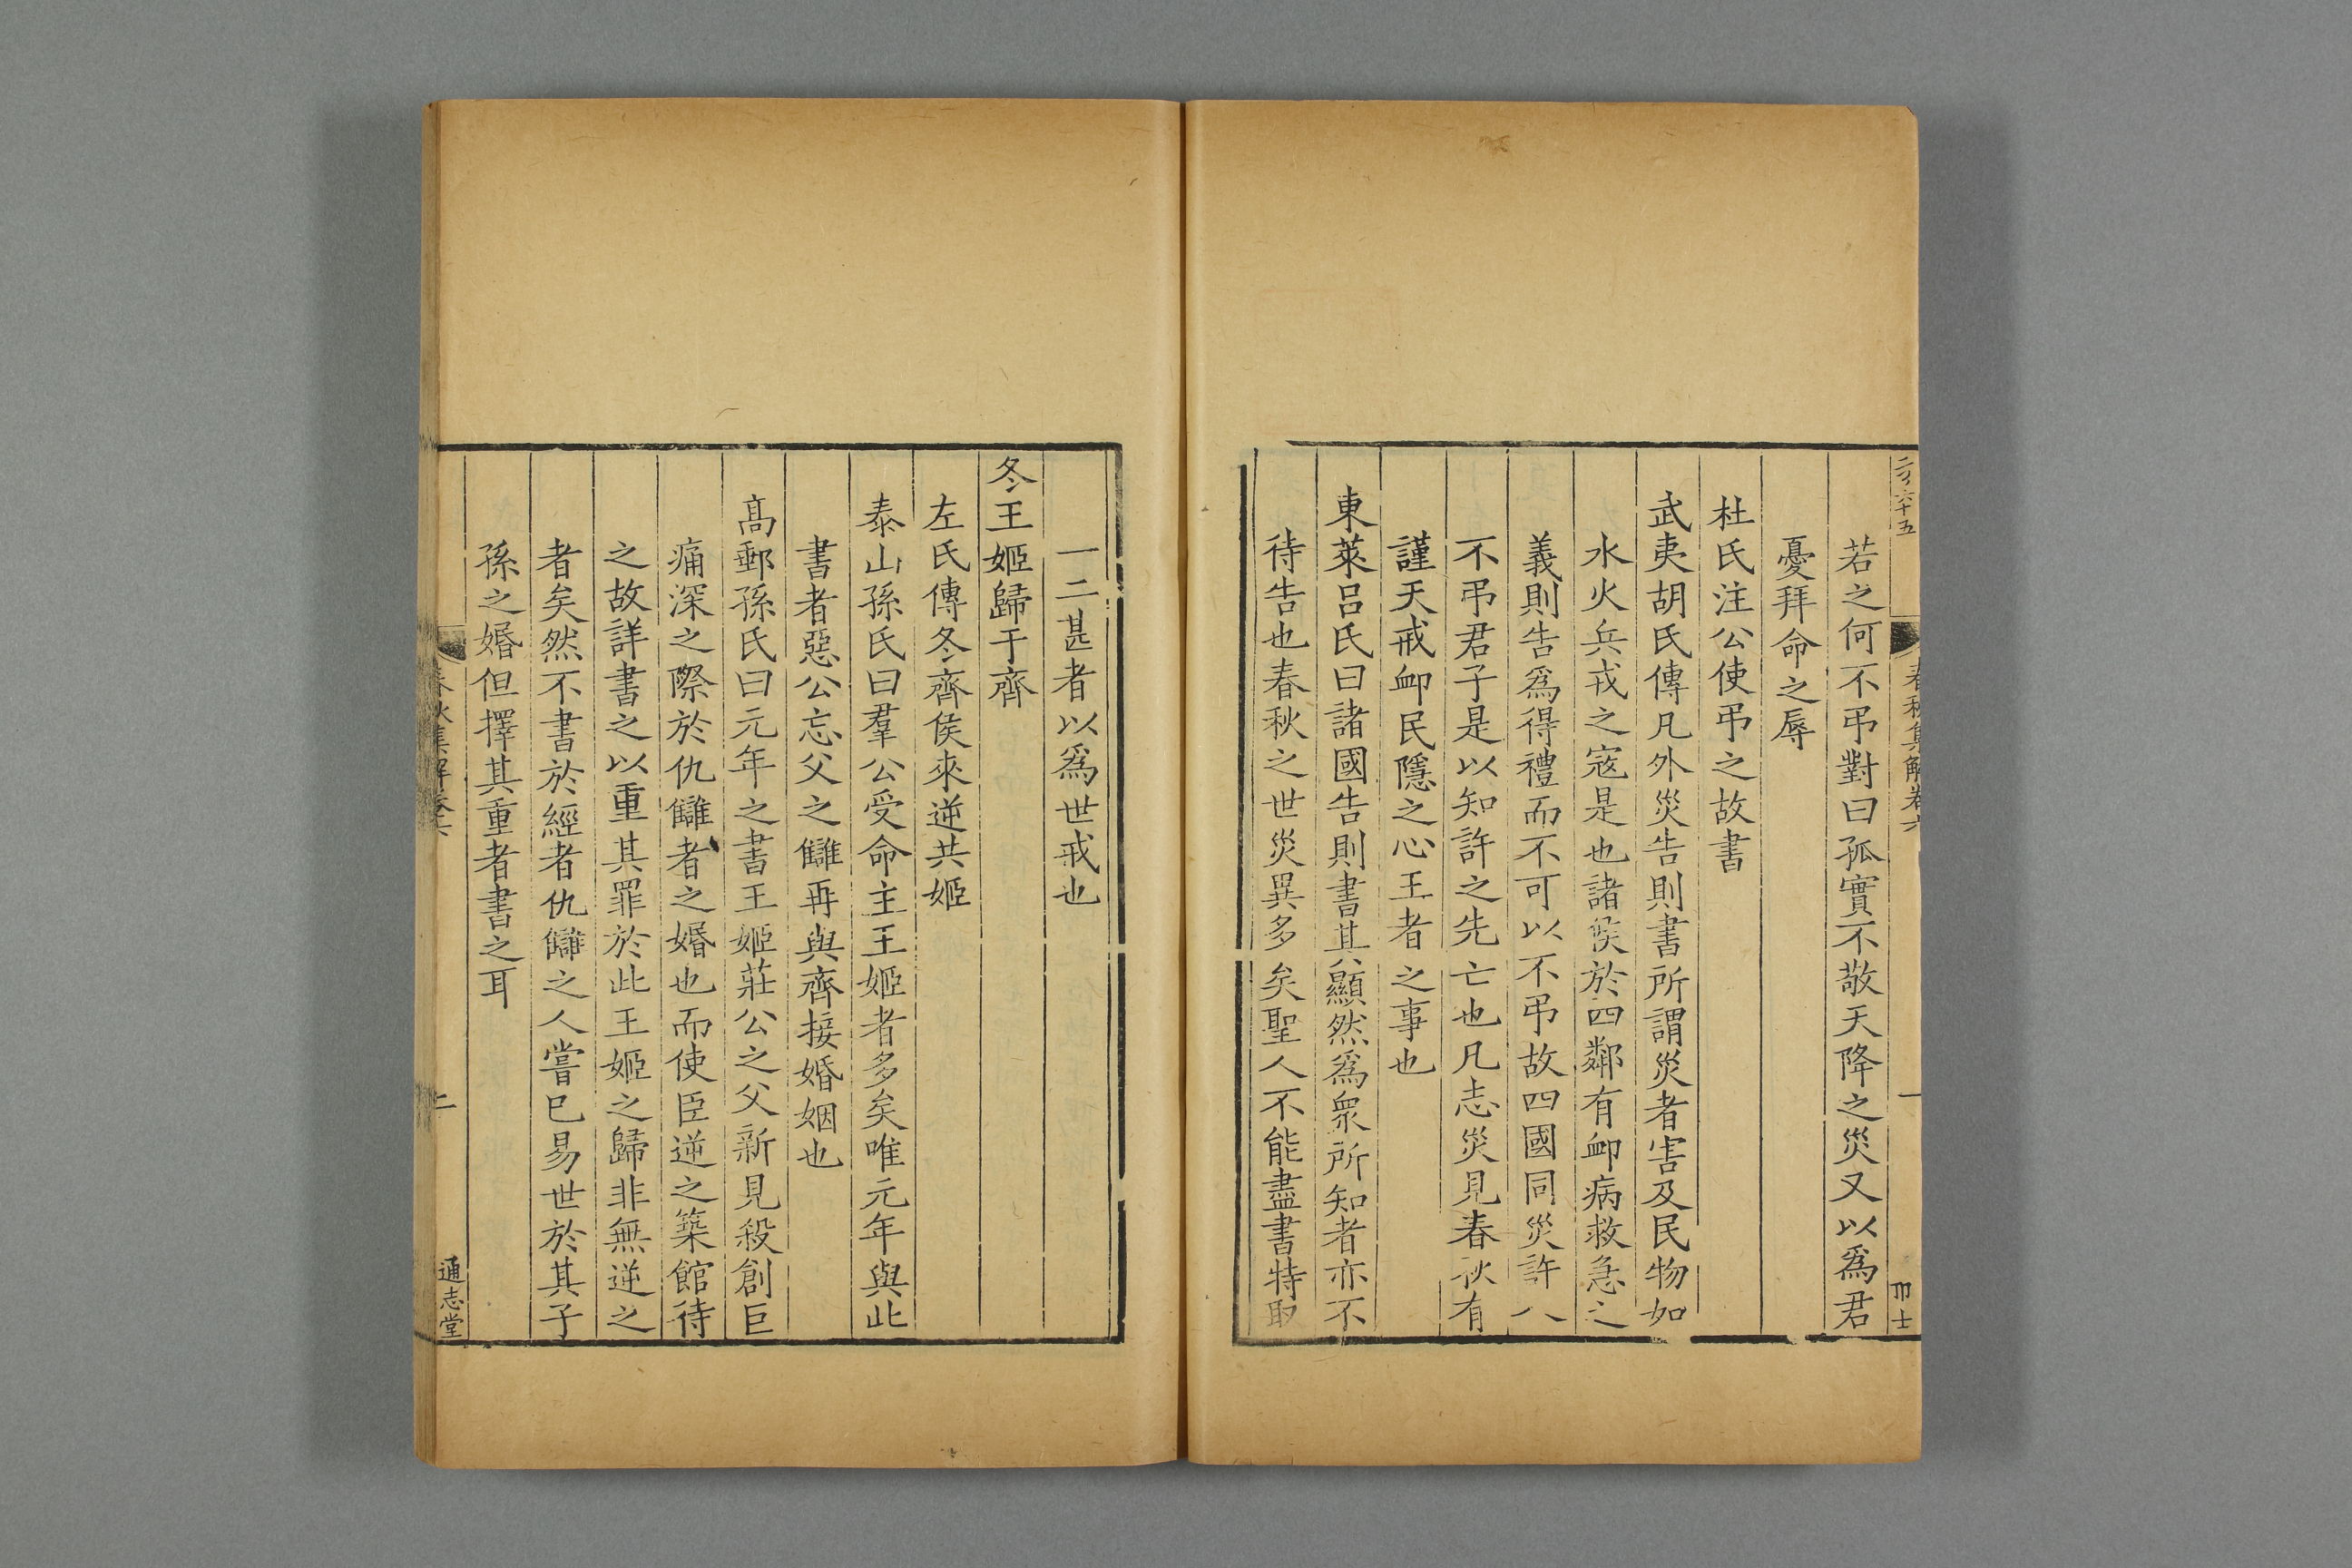 春秋集解卷六
一
若之何不弔對曰孤實不敬天降之災又以爲君
憂拜命之辱
杜氏注公使弔之故書
武夷胡氏傳凡外災告則書所謂災者害及民物如
水火兵戎之寇是也諸侯於四鄰有䘏病救急之
義則告爲得禮而不可以不弔故四國同災許人
不弔君子是以知許之先亡也凡志災見春秋有
謹天戒䘏民隱之心王者之事也
東萊呂氏曰諸國告則書其顯然爲衆所知者亦不
待告也春秋之世災異多矣聖人不能盡書特取
一二甚者以爲世戒也
冬王姬歸于齊
左氏傳冬齊侯來逆共姬
泰山孫氏曰羣公受命主王姬者多矣唯元年與此
書者惡公忘父之讎再與齊接婚姻也
高郵孫氏曰元年之書王姬莊公之父新見殺創巨
痛深之際於仇讎者之婚也而使臣逆之築館待
之故詳書之以重其罪於此王姬之歸非無逆之
者矣然不書於經者仇讎之人嘗已易世於其子
孫之婚但擇其重者書之耳
春秋集解卷六
二
通志堂